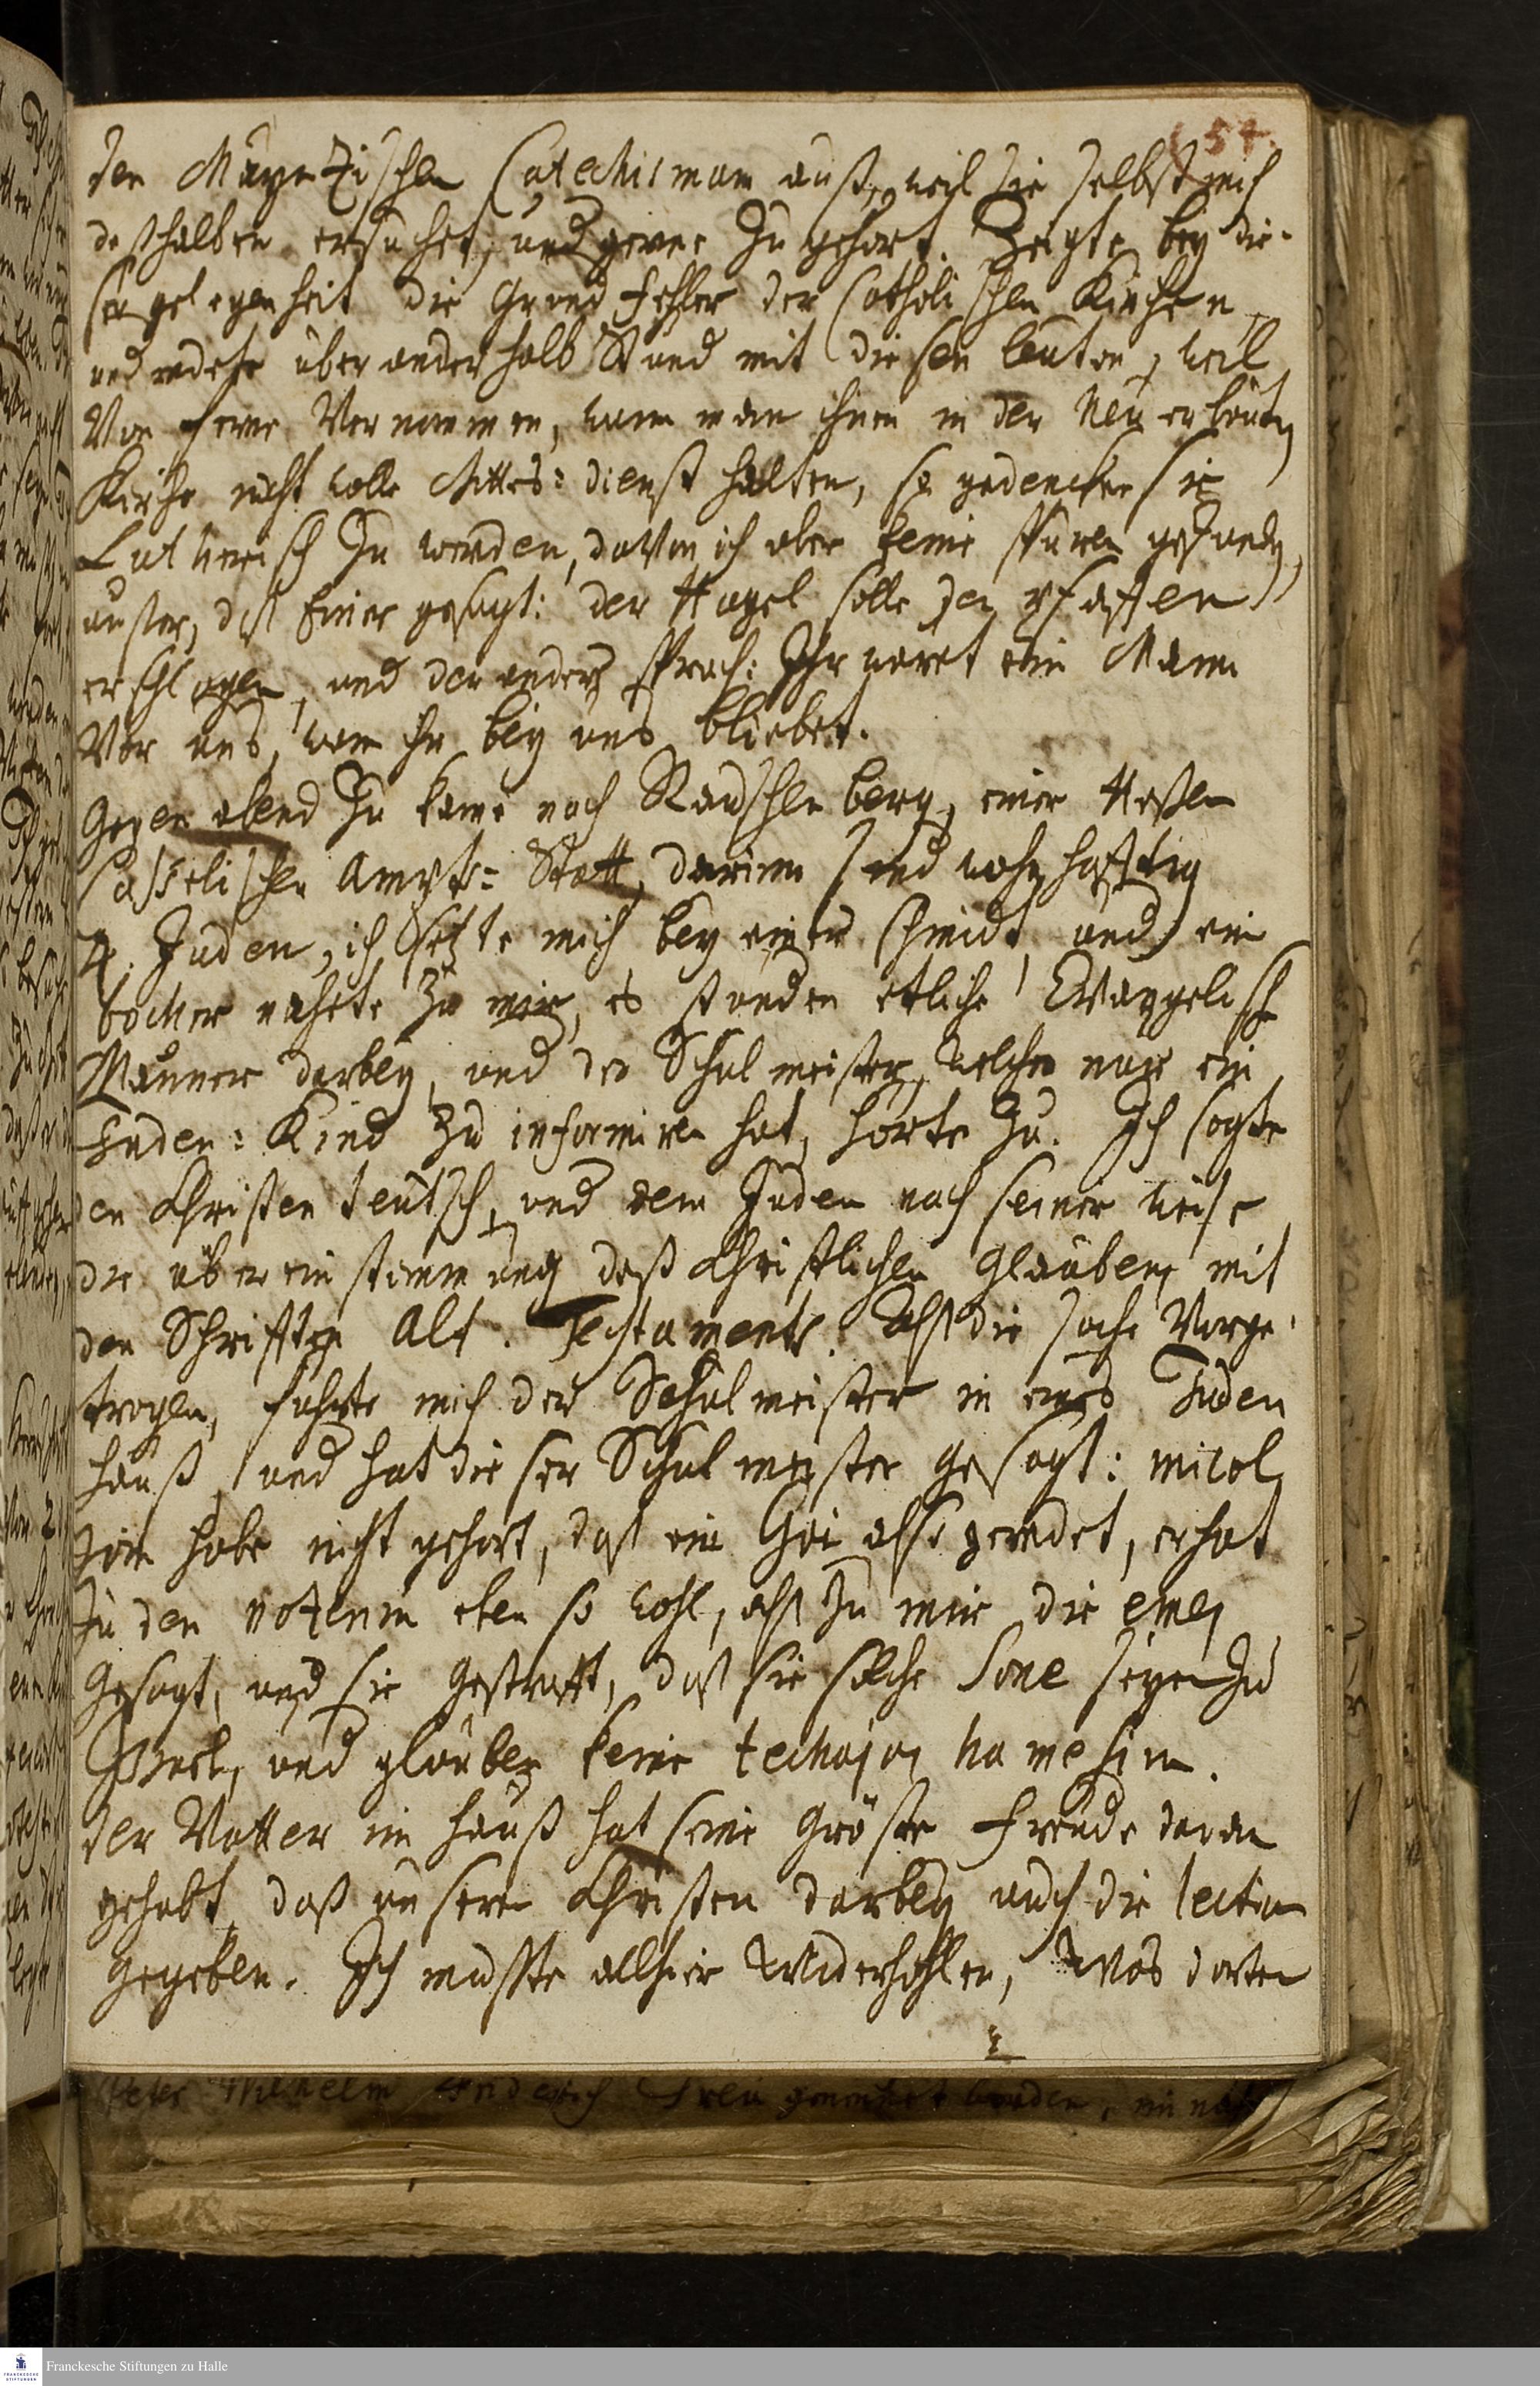 57.
den Mayntzischen Catechismum auß, weil sie selbst mich
deßhalben ersuchet, und gerne zu gehört. Zeigte bey die-
ser gelegenheit die Grund fehler der Catholischen Kirchen,
und redete über anderhalb Stund mit diesen leuten, weil
Von ferne Vernommen, wann man ihnen in der Neu erbauten
Kirche nicht wolle Gottes: dienst halten, so gedencken sie
Lutherisch zu werden, davon ich aber keine spuren gefunden,
auser, daß Einer gesagt: der Hagel solle den pfaffen
erschlagen, und der andere sprach: Ihr waret ein Mann
Vor uns, wan ihr bey uns bliebet.
Gegen abend zu kame nach Rauschenberg, einer Heßen
Casselischen Ampts: Statt, darinn sind wohnhafftig
4. Juden, ich setzte mich bey einer schmidt, und ein
bocher nahete zu mir, es stunden etliche Evangelische
Männer darbey, und der Schulmeister, welcher nur ein
Juden: Kind zu informiren hat, hörte zu. Ich sagte
den Christen teutsch, und dem Juden nach seiner weise
die übereinstimmung deß Christlichen Glaubens mit
den Schrifften Alt. Testaments. Alß die sache Vorge-
tragen, führte mich der Schulmeister in eines Juden
hauß, und hat dieser Schulmeister gesagt: micol
habe nicht gehört, daß ein Goi also geredet, er hat
zu den nozerim eben so wohl, alß zu mir die emes
gesagt, und sie gestrafft, daß sie solche Sone seyen zu
Israel, und glauben keine techajas hamesim.
der Vatter im hauß hat seine gröste freude daran
gehabt, daß unsern Christen darbey auch die lection
gegeben. Ich muste allhier Widerhohlen, Was dorten
Peter Wilhelm Friderich Treu genennet worden,
Franckesche Stiftungen zu Halle